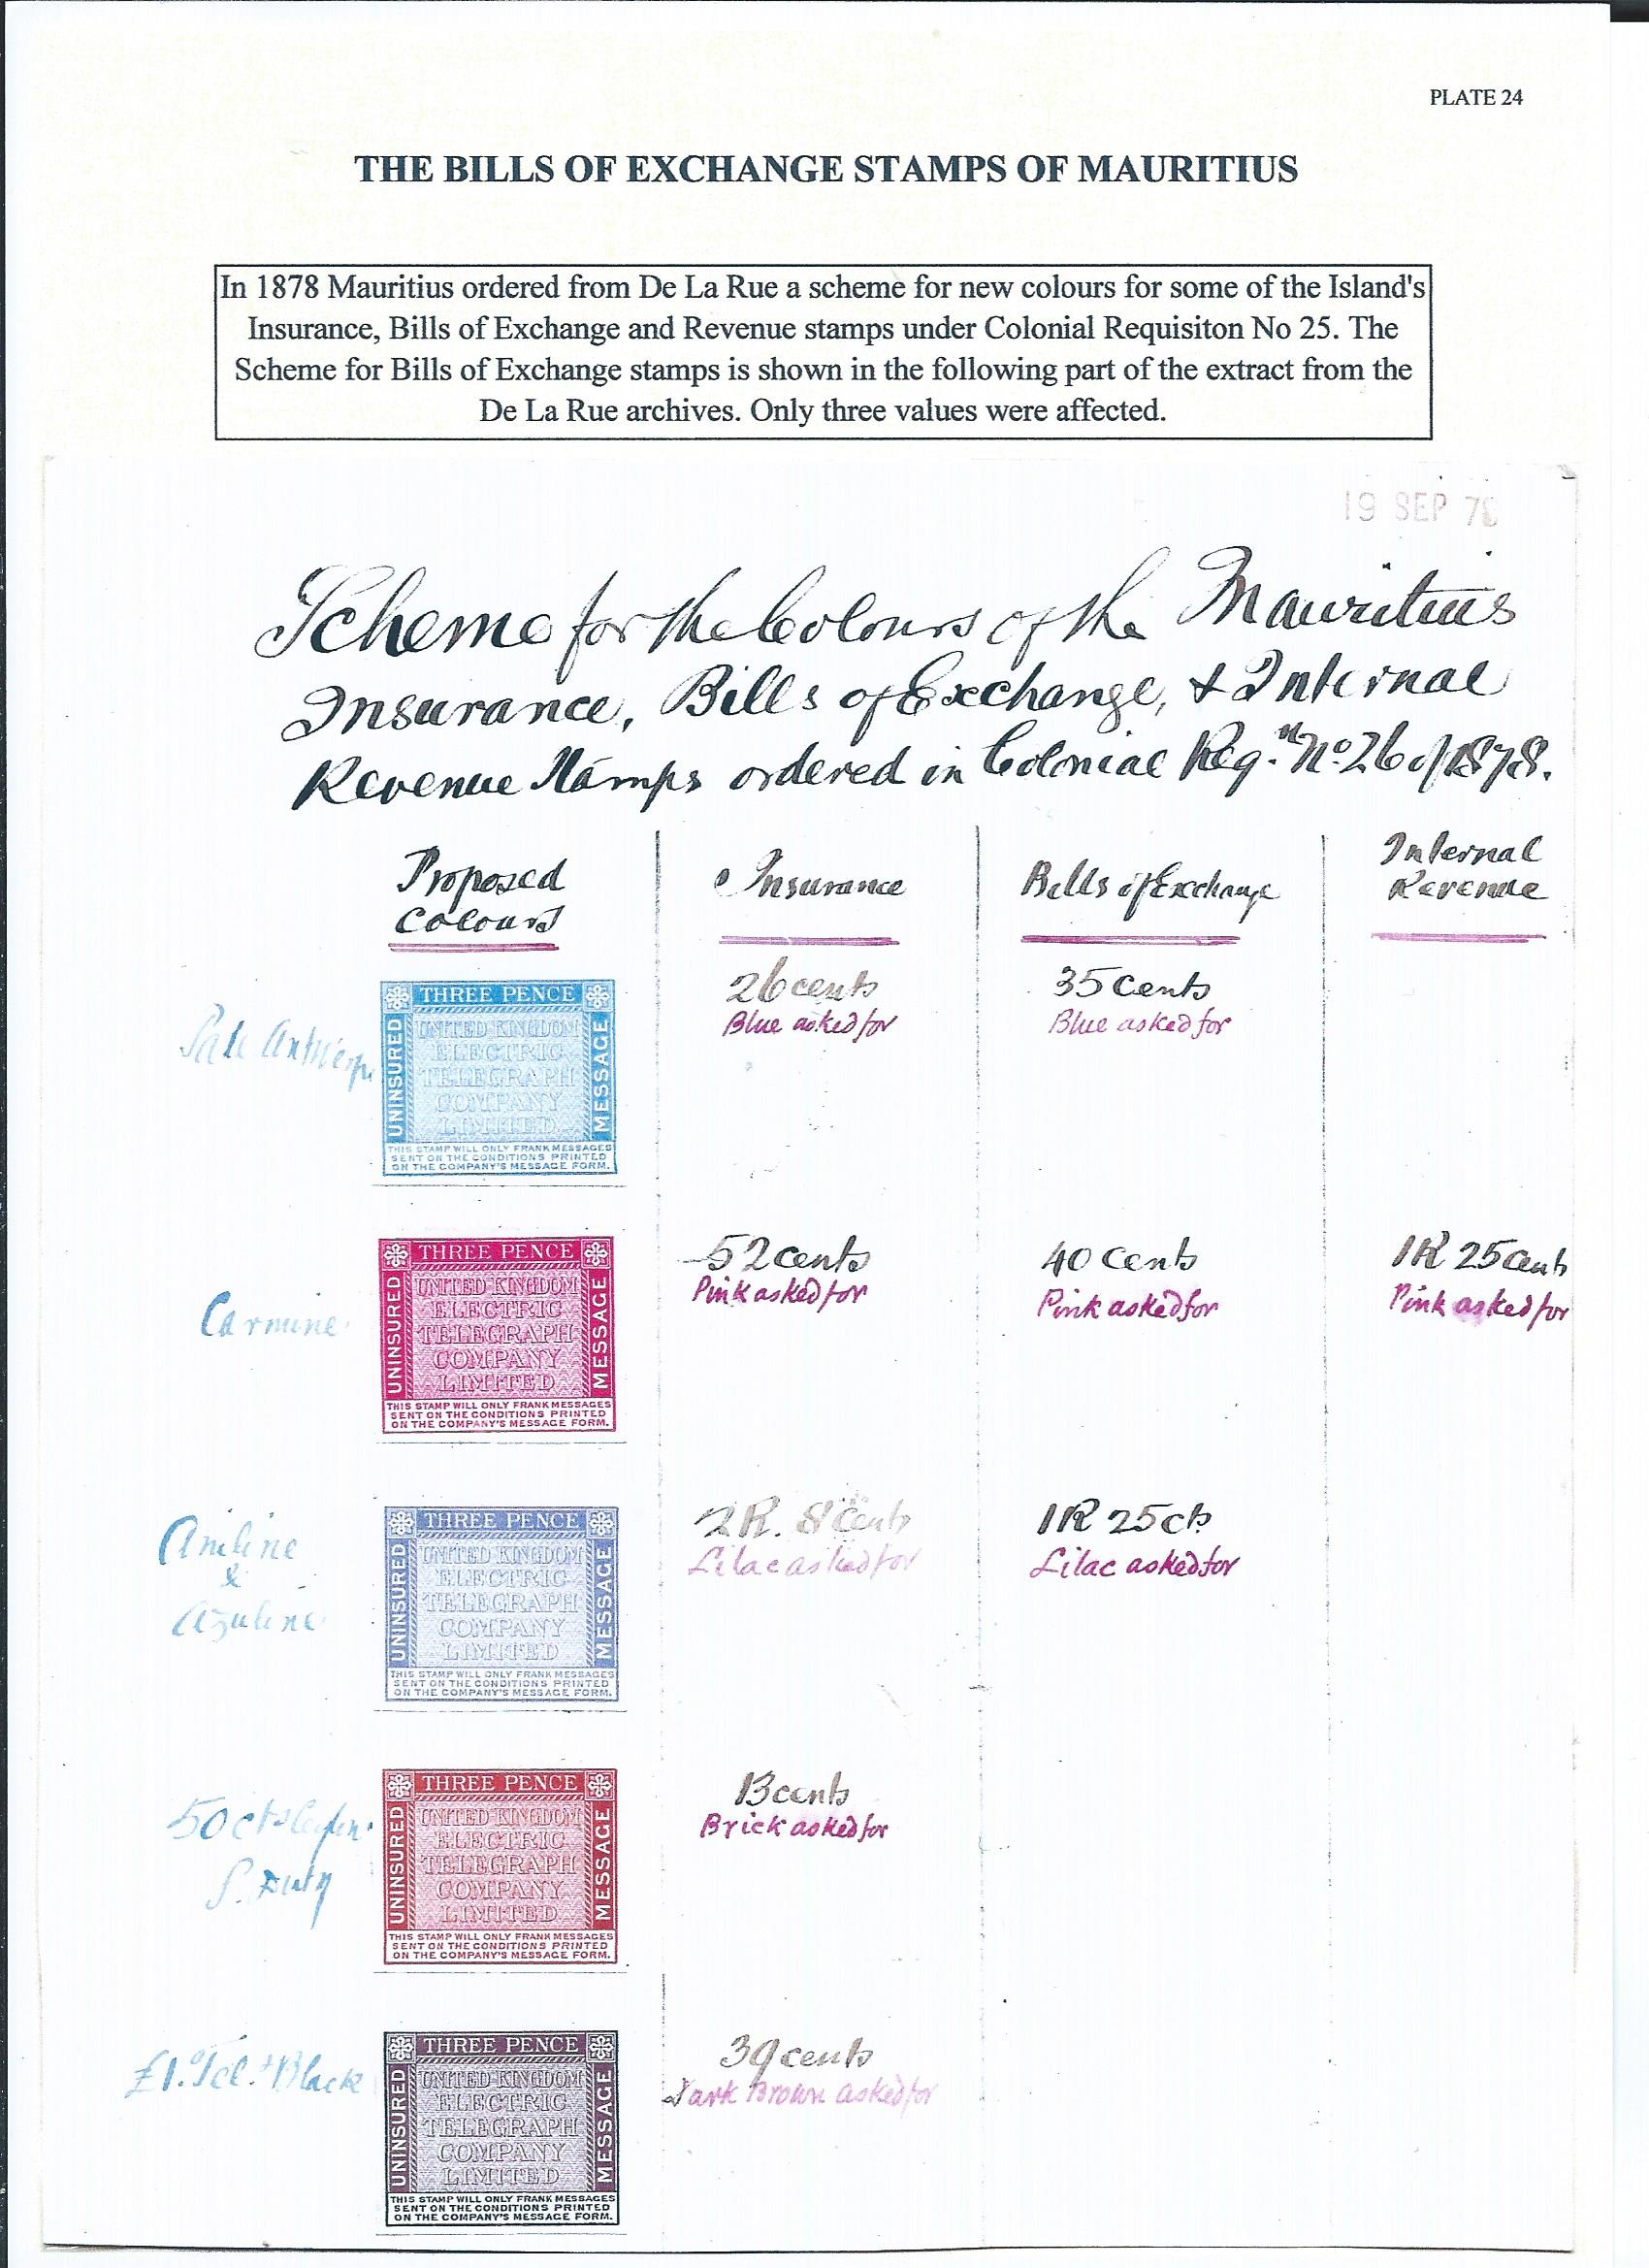 PLATE 24
THE BILLS OF EXCHANGE STAMPS OF MAURITIUS
In 1878 Mauritius ordered from De La Rue a scheme for new colours for some of the Island's
Insurance, Bills of Exchange and Revenue stamps under Colonial Requisiton No 25. The
Scheme for Bills of Exchange stamps is shown in the following part of the extract from the
De La Rue archives. Only three values were affected.
19 SEP 78
Scheme for the Colours of the Mauritius
Insurance, Bills of Exchange, & Internal
Revenue Stamps ordered in Colonial Reqn No 26 of 1878.
Proposed
Colours
Insurance
Bills of Exchange
Internal
Revenue
Pale Antwerp
THREE PENCE
UNINSURED
UNITED KINGDOM
ELECTRIC
TELEGRAPH
COMPANY
LIMITED
MESSAGE
THIS STAMP WILL ONLY FRANK MESSAGES
SENT ON THE CONDITIONS PRINTED
ON THE COMPANY'S MESSAGE FORM.
26 cents
Blue asked for
35 Cents
Blue asked for
Carmine
THREE PENCE
UNINSURED
UNITED KINGDOM
ELECTRIC
TELEGRAPH
COMPANY
LIMITED
MESSAGE
THIS STAMP WILL ONLY FRANK MESSAGES
SENT ON THE CONDITIONS PRINTED
ON THE COMPANY'S MESSAGE FORM.
52 cents
Pink asked for
40 Cents
Pink asked for
1R 25 Cents
Pink asked for
Aniline
&
Azuline
THREE PENCE
UNINSURED
UNITED KINGDOM
ELECTRIC
TELEGRAPH
COMPANY
LIMITED
MESSAGE
THIS STAMP WILL ONLY FRANK MESSAGES
SENT ON THE CONDITIONS PRINTED
ON THE COMPANY'S MESSAGE FORM.
2R. 8 Cents
Lilac asked for
1R 25 cts
Lilac asked for
50 cts
S. Duty
THREE PENCE
UNINSURED
UNITED KINGDOM
ELECTRIC
TELEGRAPH
COMPANY
LIMITED
MESSAGE
THIS STAMP WILL ONLY FRANK MESSAGES
SENT ON THE CONDITIONS PRINTED
ON THE COMPANY'S MESSAGE FORM.
13 cents
Brick asked for
£1. Tel. + Black
THREE PENCE
UNINSURED
UNITED KINGDOM
ELECTRIC
TELEGRAPH
COMPANY
LIMITED
MESSAGE
THIS STAMP WILL ONLY FRANK MESSAGES
SENT ON THE CONDITIONS PRINTED
ON THE COMPANY'S MESSAGE FORM.
39 cents
Dark Brown asked for